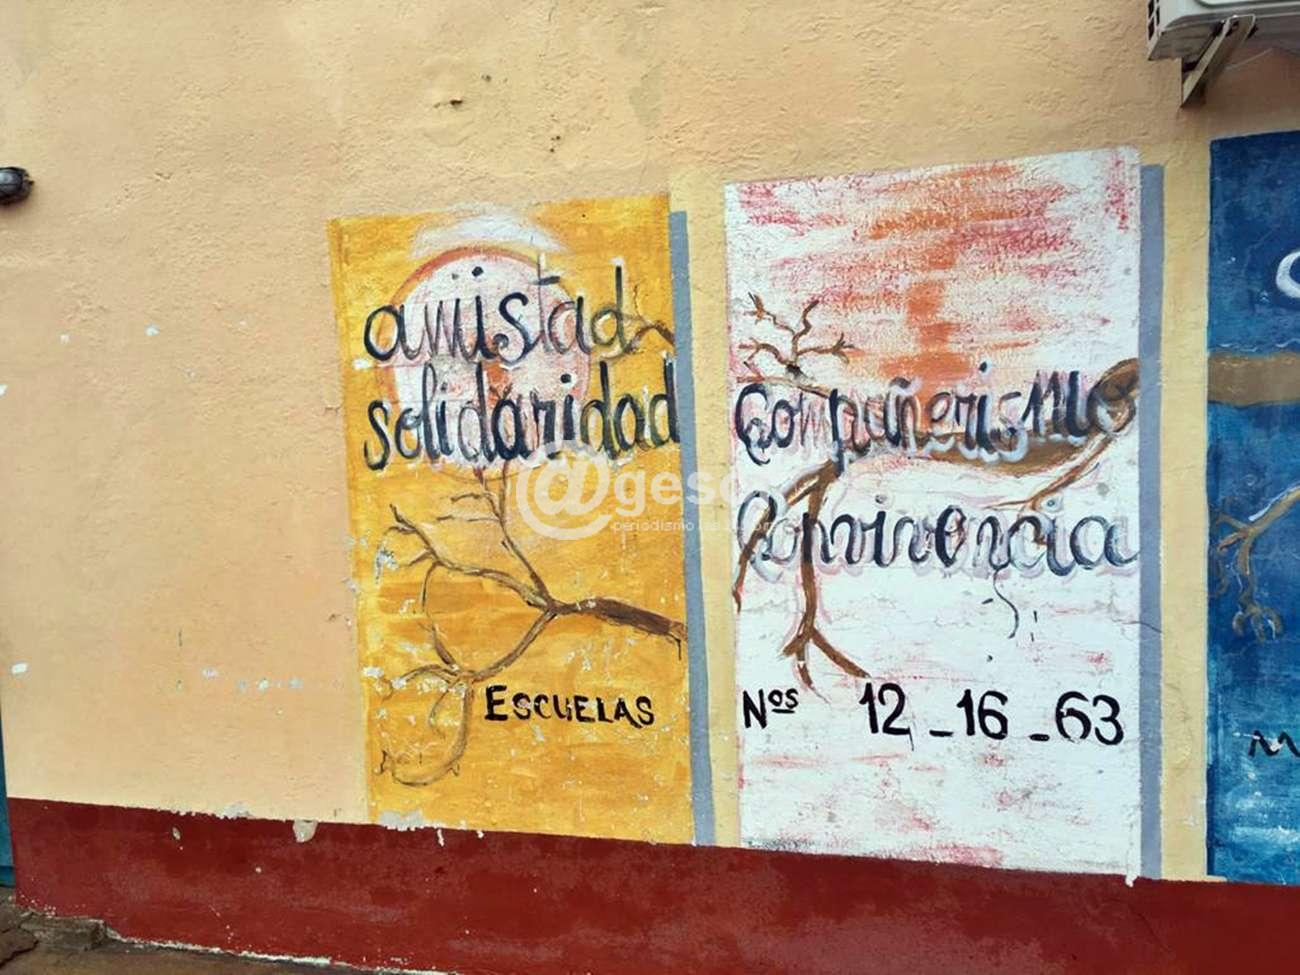 amistad
solidaridad
Compañerismo
Convivencia
ESCUELAS
Nos 12_16_63
@gesor